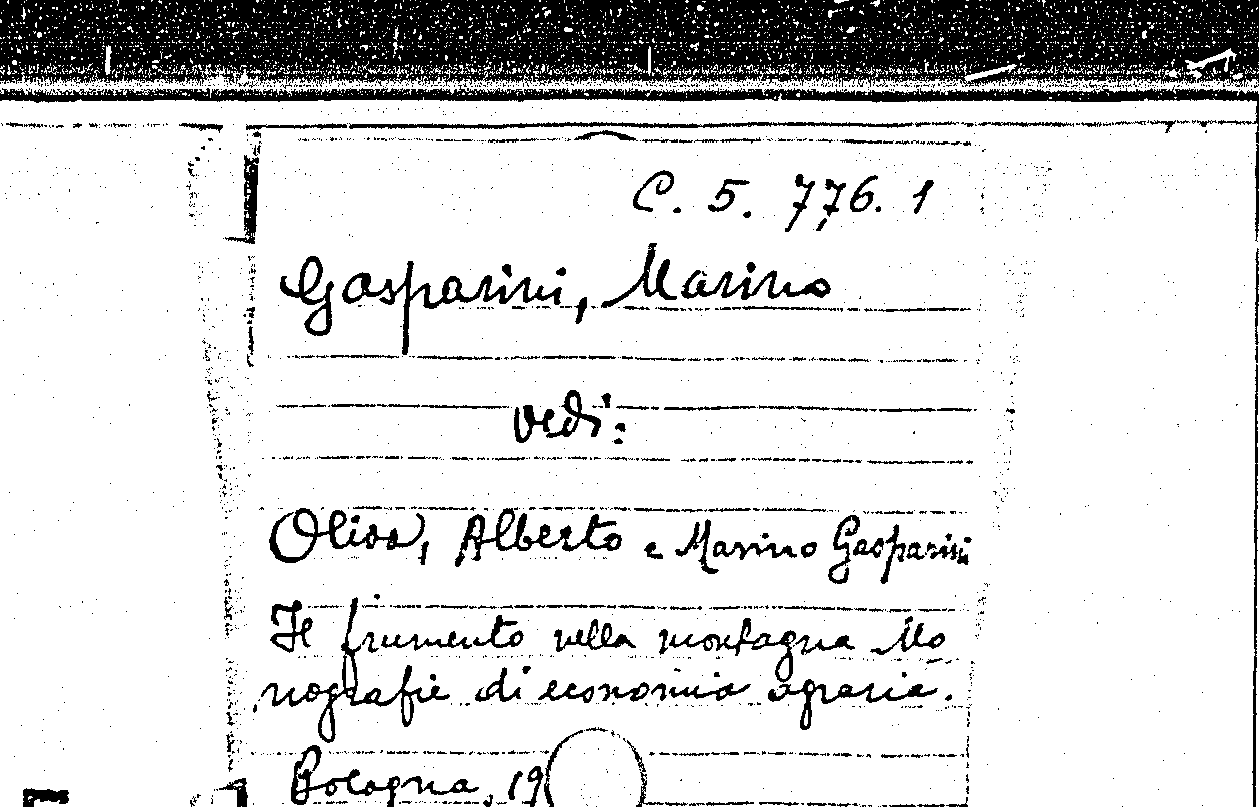 C. 5. 776. 1
Gasparini, Marino
vedi:
Oliva, Alberto e Marino Gasparini
Il frumento nella montagna Mo
nografie di economia agraria.
Bologna, 19